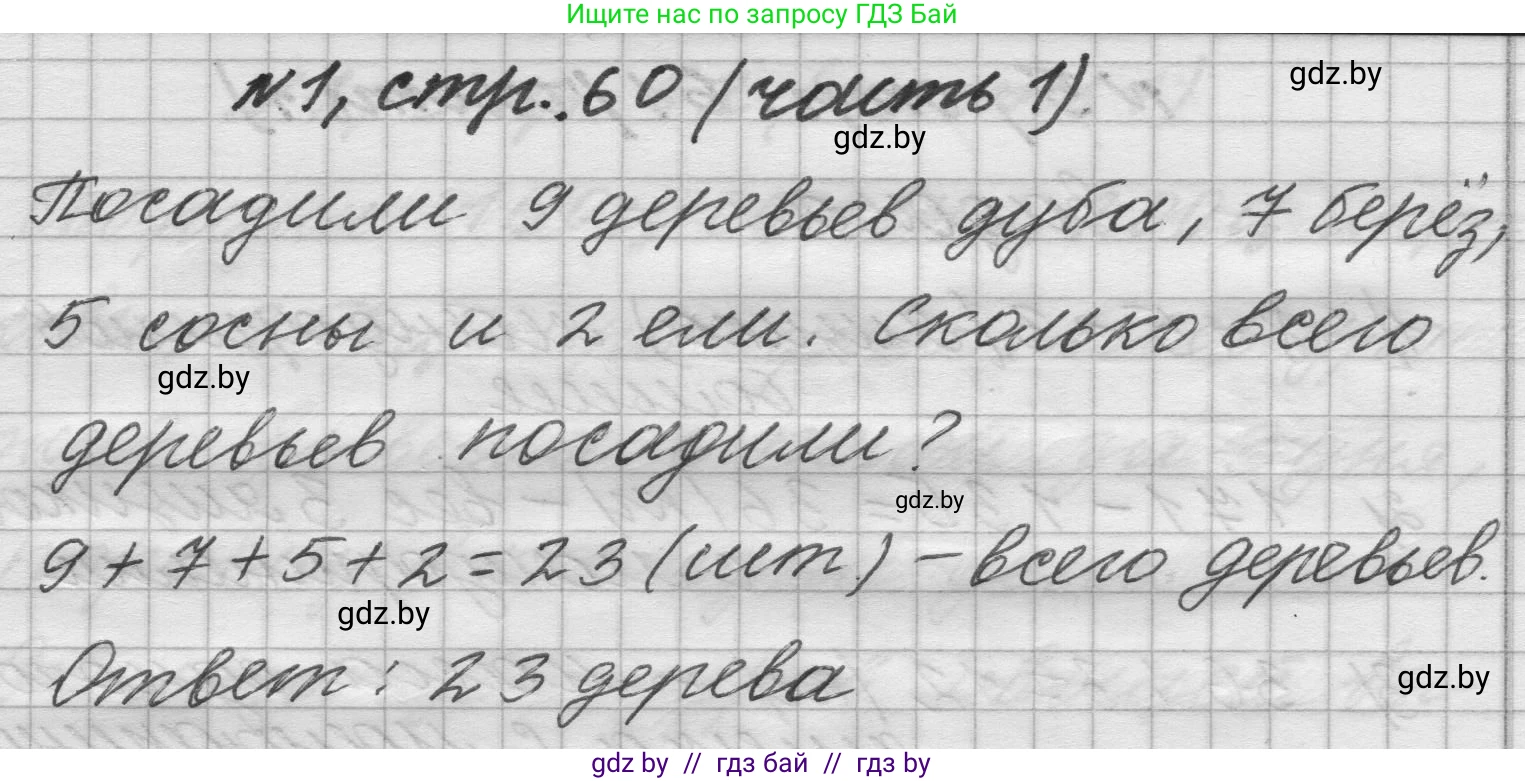 Ищите нас по запросу ГДЗ Бай
№1, стр. 60 (часть 1).
gdz.by
gdz.by
Посадили 9 деревьев дуба, 7 берёз,
5 сосны и 2 ели. Сколько всего
gdz.by
деревьев посадили?
gdz.by
9 + 7 + 5 + 2 = 23 (шт.) – всего деревьев.
gdz.by
Ответ: 23 дерева
gdz.by
gdz by // гдз бай // гдз by